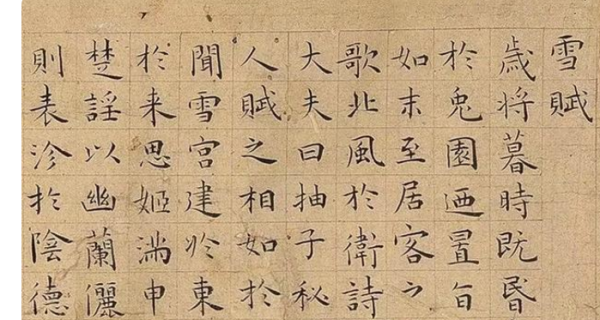 雪賦
歳将暮時既昏
於兎園迺置旨
如末至居客之
歌北風於衛詩
大夫曰抽子秘
人賦之相如於
聞雪宮建於東
於来思姬滿申
楚謡以幽蘭儷
則表沴於陰德